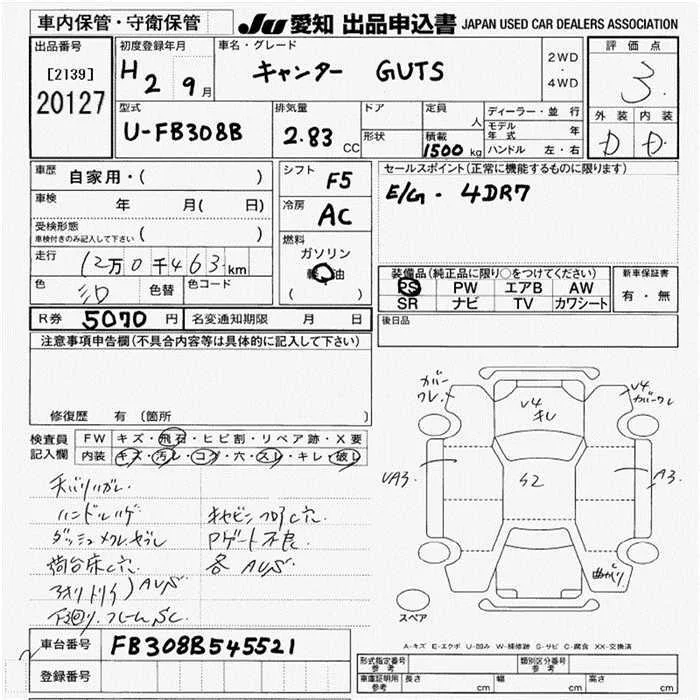 車内保管・守衛保管
JU 愛知 出品申込書 JAPAN USED CAR DEALERS ASSOCIATION
出品番号
[2139]
20127
初度登録年月
H 2 9月
車名・グレード
キャンター GUTS
2WD
・
4WD
評価点
3
外装 内装
D D
型式
U-FB308B
排気量
2.83 CC
ドア
形状
定員
人
積載
1500 kg
ディーラー・並行
モデル年式 年
ハンドル 左・右
車歴
自家用・( )
車検
年 月( 日)
受検形態
車検付きのみ記入して下さい ( )
走行
12万0千463km
色
色替
色コード
シフト
F5
冷房
AC
燃料
ガソリン
軽油
( )
セールスポイント(正常に機能するものに限ります)
E/G. 4DR7
装備品(純正品に限り○をつけてください)
PS PW エアB AW
SR ナビ TV カワシート
新車保証書
有・無
R券 5070 円
名変通知期限 月 日
後日品
注意事項申告欄(不具合内容等は具体的に記入して下さい)
修復歴 有 (箇所 )
検査員
記入欄
FW キズ・飛石・ヒビ割・リペア跡・X要
内装 キズ・汚レ・コゲ・穴・スレ・キレ・破レ
天バリハガレ
ハンドルハゲ
荷台床C穴
Pゲート不良
各 AUS
下廻リ.フレームSC
カバーワレ
U4
キレ
U4
カバーワレ
UA3
S2
A3
曲がり
スペア
A-キズ E-エクボ U-凹み W-補修跡 S-サビ C-腐食 XX-交換済
車台番号
FB308B545521
登録番号
形式指定番号
参考
類別区分番号
参考
車庫証明用
参考
長さ cm
幅 cm
高さ cm